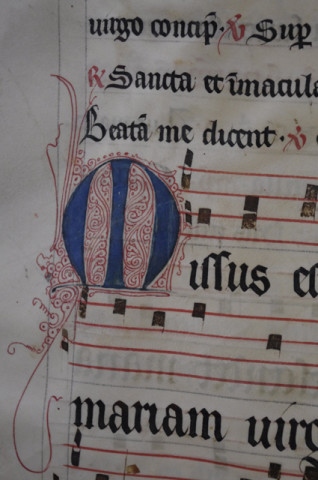 uirgo concip̄. ꝟ Sup
℟ Sancta et īmacula
Beatā me dicent. ꝟ
Missus es
mariam uirg